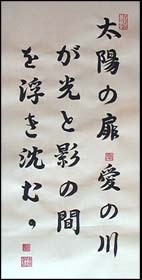 太陽の扉 愛の川
が光と影の間
を浮き沈む。